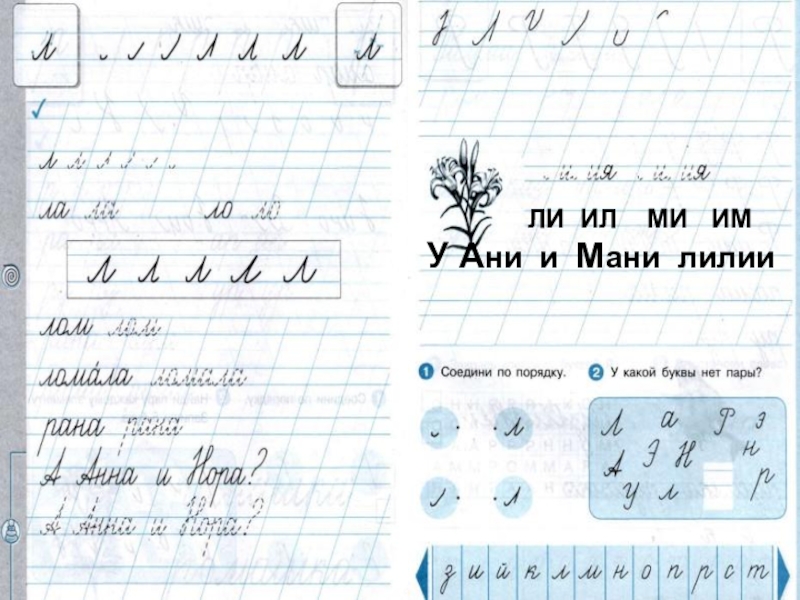 л л л л л
л л л л л
ла ла ло ло
л л л л л
лом лом
ломáла ломала
рана рана
А Анна и Нора?
А Анна и Нора?
ли ил ми им
У Ани и Мани лилии
1 Соедини по порядку.
2 У какой буквы нет пары?
л
л
Л а Р э
А Э Н н
у л р
з и й к л м н о п р с т